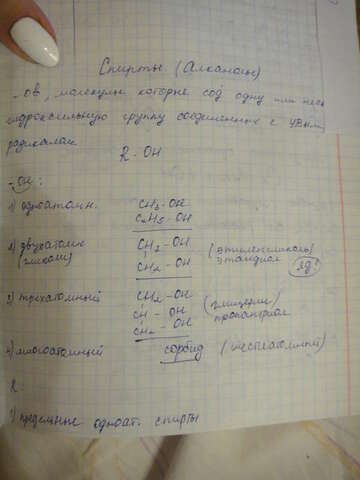 Спирты (Алканолы)
- ОВ, молекулы которые сод одну или неск
гидроксильную группу соединенных с УВ-ым
радикалом
R - OH
-OH :
1) одноатомн. CH3-OH
C2H5-OH
2) двухатомн CH2-OH (этиленгликоль)
(гликоли) CH2-OH этандиол яд!
3) трехатомный CH2-OH (глицерин)
CH - OH пропантриол
CH2 - OH
4) многоатомный сорбид (шестиатомный)
R:
1) предельные одноат. спирты